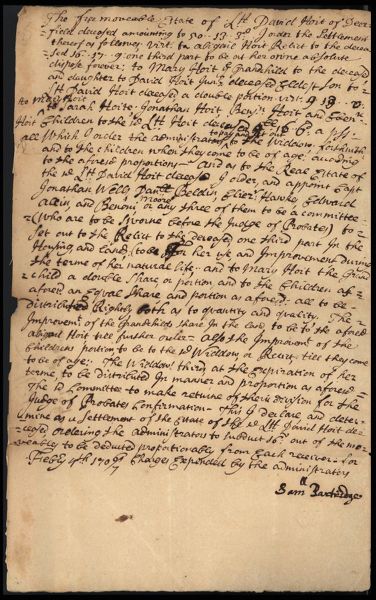 The free moveable Estate of Lt David Hoit of Deer-
field deceased amounting to 50-13-3d I order the Settlement
thereof as followes, virt. to abigaie Hoit Relict to the decea
sed 16-17-9: one third part to be at her owne absolute
dispose forever; to Mary Hoit Grandchild to the deceased
and daughter to David Hoit Junr deceased Eldest Son to
Lt David Hoit deceased a double portion virt.
to Mary Hoit
to Sarah Hoite Jonathan Hoit Benjn Hoit and
Hoit Children to the sd Lt Hoit deceased
all Which I order the administrators to pay out to the Widdow forthwith
and to the children when they come to be of age, according
to the aforesd proportions - And as to the Real Estate of
the sd Lt David Hoit deceased I order, and appoint Capt
Jonathan Wells Daniel Belding, Eliezr Hawks Edward
Allin, and Benoni Moore or any three of them to be a committee
(Who are to be Sworne before the Judge of Probates) to
Set out to the Relict to the deceased one third part in the
Housing and land, (to be for her use and Improvement during
the terme of her natural life - and to Mary Hoit the Grand
child a double share or portion and to the Children af-
aforesd an Equal share and portion as aforesd - all to be
distributed Rightly both as to quantity and quality. The
Improvemt of the Grandchilds share in the land, to be to the aforesd
abigail Hoit till further order - also the Improvemt of the
Childrens portion to be to the sd Widdow or Relict till they come
to be of age. The Widdows third, at the Expiration of her
terme to be distributed In manner and proportion as aforesd
The sd Committee to make returne of their division for the
Judge of Probates Confirmation - This I declare, and deter
mine as a Settlement of the Estate of the sd Lt David Hoit de-
ceased ordering the administrators to subduct 16s out of the mo-
veables to be deducted proportionably from Each receiver - for
Charges Expended by the administrators
Febry 4th
Samll Partridge